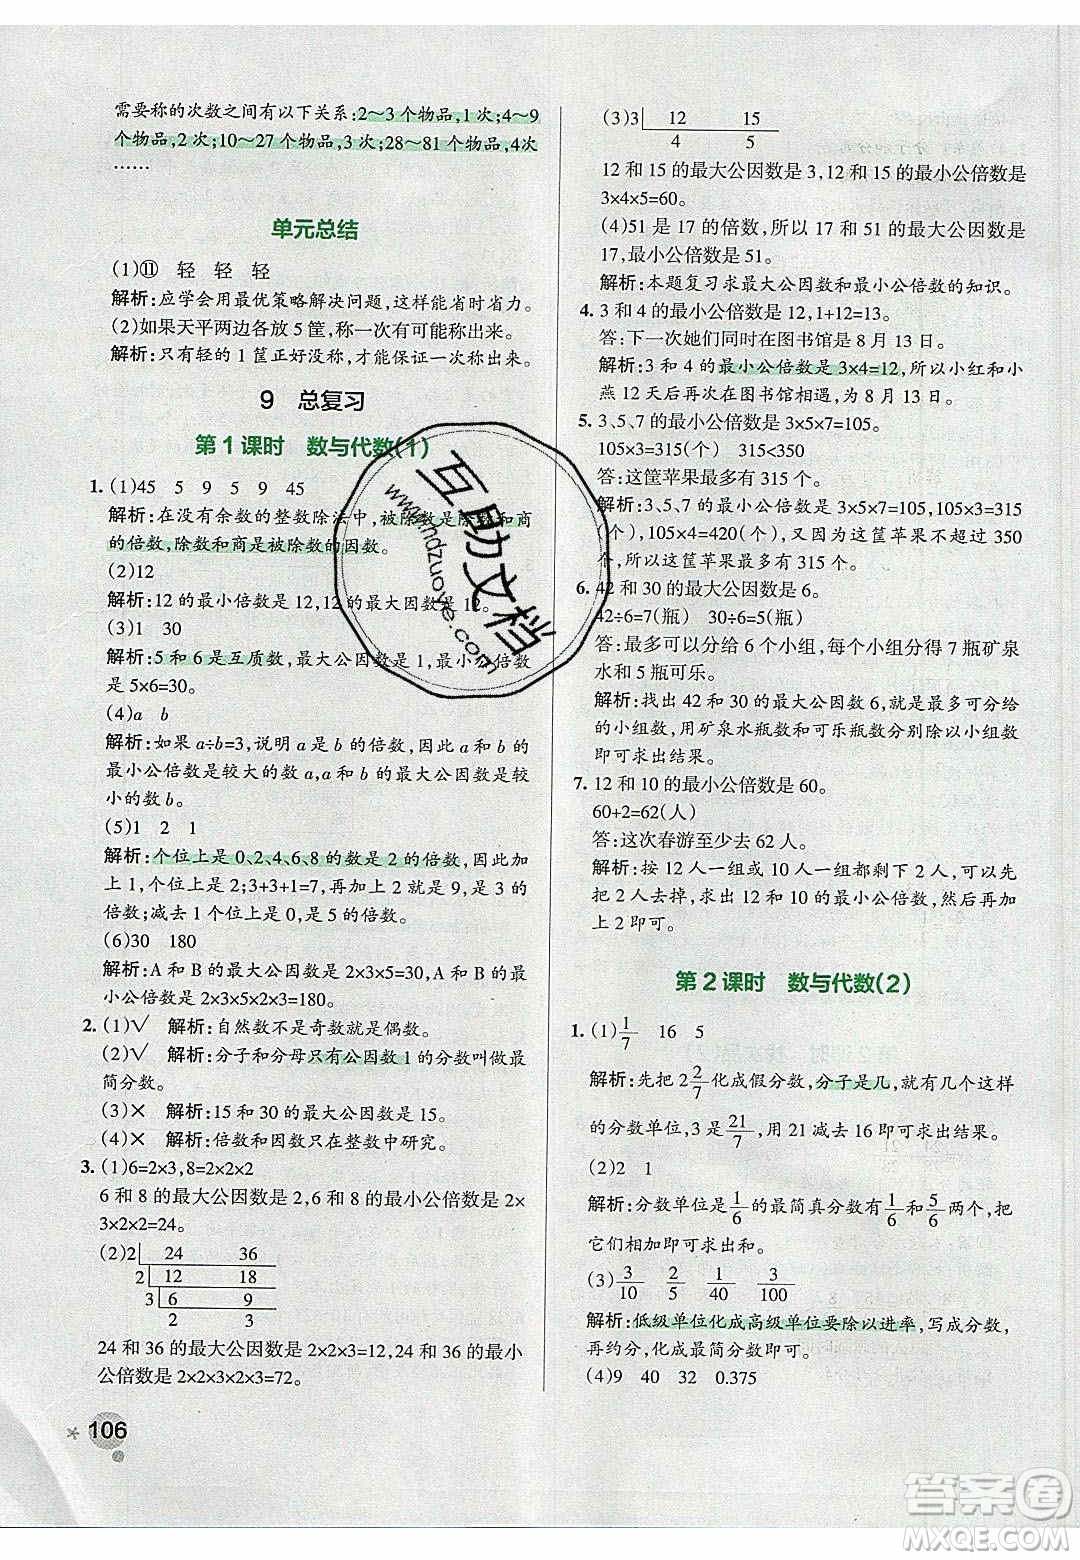 需要称的次数之间有以下关系:2～3 个物品,1 次;4～9
个物品,2 次;10～27 个物品,3 次;28～81 个物品,4次
……
单元总结
(1)⑪ 轻 轻 轻
解析:应学会用最优策略解决问题,这样能省时省力。
(2)如果天平两边各放 5 筐,称一次有可能称出来。
解析:只有轻的 1 筐正好没称,才能保证一次称出来。
9 总复习
第 1 课时 数与代数(1)
1. (1)45 5 9 5 9 45
解析:在没有余数的整数除法中,被除数是除数和商
的倍数,除数和商是被除数的因数。
(2)12
解析:12 的最小倍数是 12,12 的最大因数是 12。
(3)1 30
解析:5 和 6 是互质数,最大公因数是 1,最小公倍数
是 5×6=30。
(4)a b
解析:如果 a÷b=3,说明 a 是 b 的倍数,因此 a 和 b 的
最小公倍数是较大的数 a,a 和 b 的最大公因数是较
小的数 b。
(5)1 2 1
解析:个位上是 0、2、4、6、8 的数是 2 的倍数,因此加
上 1,个位上是 2;3+3+1=7,再加上 2 就是 9,是 3 的
倍数;减去 1 个位上是 0,是 5 的倍数。
(6)30 180
解析:A 和 B 的最大公因数是 2×3×5=30,A 和 B 的最
小公倍数是 2×3×5×2×3=180。
2. (1)√ 解析:自然数不是奇数就是偶数。
(2)√ 解析:分子和分母只有公因数 1 的分数叫做最
简分数。
(3)× 解析:15 和 30 的最大公因数是 15。
(4)× 解析:倍数和因数只在整数中研究。
3. (1)6=2×3,8=2×2×2
6 和 8 的最大公因数是 2,6 和 8 的最小公倍数是 2×
3×2×2=24。
(2)2 24 36
2 12 18
3 6 9
2 3
24 和 36 的最大公因数是 2×2×3=12,24 和 36 的最小
公倍数是 2×2×3×2×3=72。
106
(3)3 12 15
4 5
12 和 15 的最大公因数是 3,12 和 15 的最小公倍数是
3×4×5=60。
(4)51 是 17 的倍数,所以 17 和 51 的最大公因数是
17,最小公倍数是 51。
解析:本题复习求最大公因数和最小公倍数的知识。
4. 3 和 4 的最小公倍数是 12,1+12=13。
答:下一次她们同时在图书馆是 8 月 13 日。
解析:3 和 4 的最小公倍数是 3×4=12,所以小红和小
燕 12 天后再次在图书馆相遇,为 8 月 13 日。
5. 3、5、7 的最小公倍数是 3×5×7=105。
105×3=315(个) 315<350
答:这筐苹果最多有 315 个。
解析:3、5、7 的最小公倍数是 3×5×7=105,105×3=315
(个),105×4=420(个),又因为这筐苹果不超过 350
个,所以这筐苹果最多有 315 个。
6. 42 和 30 的最大公因数是 6。
42÷6=7(瓶) 30÷6=5(瓶)
答:最多可以分给 6 个小组,每个小组分得 7 瓶矿泉
水和 5 瓶可乐。
解析:找出 42 和 30 的最大公因数 6,就是最多可分给
的小组数,用矿泉水瓶数和可乐瓶数分别除以小组数
即可求出结果。
7. 12 和 10 的最小公倍数是 60。
60+2=62(人)
答:这次春游至少去 62 人。
解析:按 12 人一组或 10 人一组都剩下 2 人,先把这
2 人去掉,求出 12 和 10 的最小公倍数,最后再加
上 2 即可。
第 2 课时 数与代数(2)
1. (1)1/7 16 5
解析:先把 2 2/7 化成假分数,分子是几,就有几个这样
的分数单位,3 是 21/7,用 21 减去 16 即可求出结果。
(2)2 1
解析:分数单位是 1/6 的最简真分数有 1/6 和 5/6 两个,把
它们相加即可求出和。
(3)3/10 2/5 1/40 3/100
解析:低级单位化成高级单位要除以进率,写成分数,
再约分,化成最简分数即可。
(4)9 40 32 0.375
互助文档
www.hdzuoye.com
答案圈
MXQE.COM